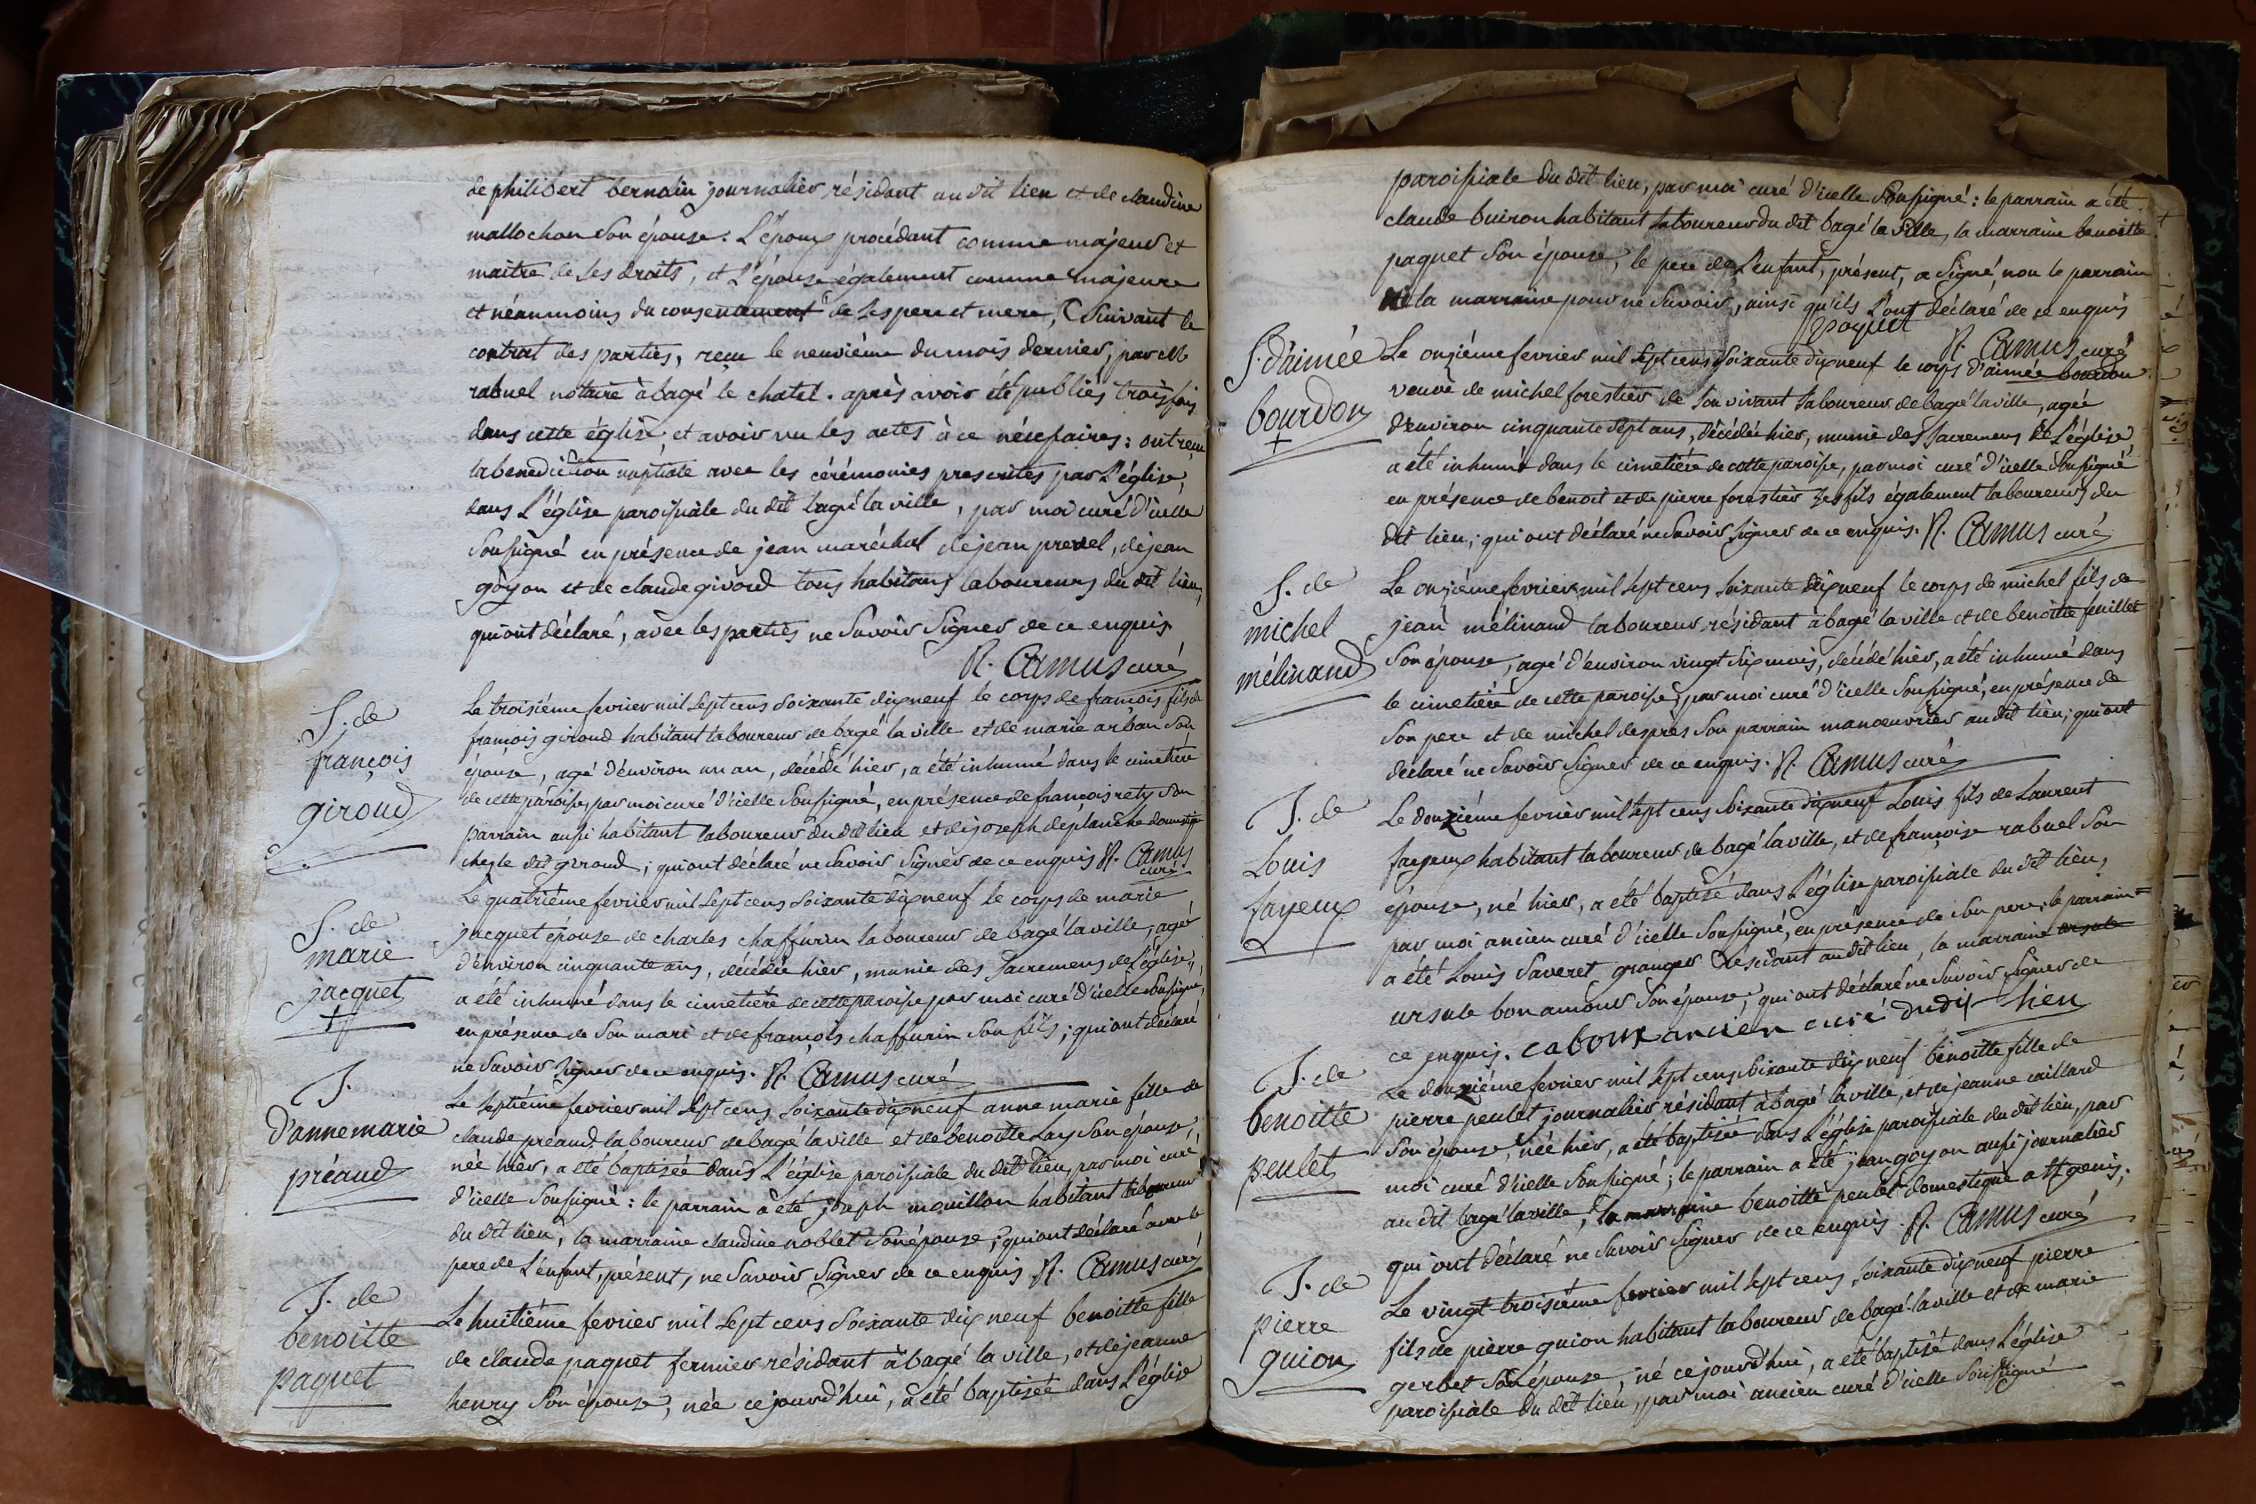 de philibert bernolin journalier résidant au dit lieu et de claudine
mallochon son épouse. L'époux procédant comme majeur et
maitre de ses droits, et L'épouse également comme majeure
et néanmoins du consentement de ses pere et mere, suivant le
contrat des parties, reçu le neuvième du mois dernier, par Me
rabuel notaire à bagé le chatel. après avoir été publiés trois fois
dans cette église et avoir vu les actes à ce nécessaires: ont reçu
la benediction nuptiale avec les cérémonies prescrites par L'église,
dans L'église paroissiale du dit bagé la ville, par moi curé d'icelle
soussigné en présence de jean maréchal de jean prevel, de jean
goyon et de claude givord tous habitans laboureurs du dit lieu,
qui ont déclaré, avec les parties ne savoir signer de ce enquis.
R. Camus curé
S. de
françois
giroud
Le troisième fevrier mil sept cens soixante dix neuf le corps de françois, fils de
françois giroud habitant laboureur de bagé la ville et de marie arban son
épouse, agé d'environ un an, décédé hier, a été inhumé dans le cimetière
de cette paroisse, par moi curé d'icelle soussigné, en présence de françois rety son
parrain aussi habitant laboureur du dit lieu et de joseph deplanche domestique
chez le dit giroud; qui ont déclaré ne savoir signer de ce enquis R. Camus
curé
S. de
marie
jacquet
+
Le quatrième fevrier mil sept cens soixante dix neuf le corps de marie
jacquet épouse de charles chaffurin laboureur de bagé la ville, agée
d'environ cinquante ans, décédée hier, munie des sacremens de L'église,
a été inhumé dans le cimetière de cette paroisse par moi curé d'icelle soussigné,
en présence de son mari et de françois chaffurin son fils; qui ont déclaré
ne savoir signer de ce enquis. R. Camus curé
J.
d'anne marie
préaud
Le septième fevrier mil sept cens soixante dix neuf anne marie fille de
claude préaud laboureur de bagé la ville et de benoitte Lay son épouse,
née hier, a été baptisée dans L'église paroissiale du dit lieu, par moi curé
d'icelle soussigné: le parrain a été joseph mouillon habitant laboureur
du dit lieu, la marraine claudine noblet son épouse; qui ont déclaré avec le
pere de L'enfant, présent, ne savoir signer de ce enquis R. Camus curé
J. de
benoitte
paquet
Le huitième fevrier mil sept cens soixante dix neuf benoitte fille
de claude paquet fermier résidant à bagé la ville, et de jeanne
henry son épouse, née ce jourd'hui, a été baptisée dans L'église
paroissiale du dit lieu, par moi curé d'icelle soussigné: le parrain a été
claude buiron habitant laboureur du dit bagé la ville, la marraine benoitte
paquet son épouse, le pere de L'enfant, présent, a signé, non le parrain
ni la marraine pour ne savoir, ainsi qu'ils l'ont déclaré de ce enquis
paquet
R. Camus curé
S. d'aimée
bourdon
+
Le onzième fevrier mil sept cens soixante dix neuf le corps d'aimée bourdon
veuve de michel forestier de son vivant laboureur de bagé la ville, agée
d'environ cinquante sept ans, décédée hier, munie des sacremens de L'église
a été inhumé dans le cimetière de cette paroisse, par moi curé d'icelle soussigné
en présence de benoit et de pierre forestier ses fils également laboureurs du
dit lieu; qui ont déclaré ne savoir signer de ce enquis. R. Camus curé
S. de
michel
mélinand
Le onzième fevrier mil sept cens soixante dix neuf le corps de michel fils de
jean mélinand laboureur résidant à bagé la ville et de benoitte feuillet
son épouse, agé d'environ vingt six mois, décédé hier, a été inhumé dans
le cimetière de cette paroisse, par moi curé d'icelle soussigné, en présence de
son pere et de michel després son parrain manœuvrier au dit lieu; qui ont
déclaré ne savoir signer de ce enquis. R. Camus curé
J. de
Louis
fayeux
Le douzième fevrier mil sept cens soixante dix neuf Louis fils de Laurent
fayeux habitant laboureur de bagé la ville, et de françoise rabuel son
épouse, né hier, a été baptisé dans L'église paroissiale du dit lieu,
par moi ancien curé d'icelle soussigné, en présence de son pere, le parrain
a été Louis Saveret granger résidant au dit lieu, la marraine ursule
ursule bon amour son épouse; qui ont déclaré ne savoir signer de
ce enquis. cabour ancien curé dudit lieu
J. de
benoitte
peulet
Le douzième fevrier mil sept cens soixante dix neuf benoitte fille de
pierre peulet journalier résidant à bagé la ville, et de jeanne caillard
son épouse, née hier, a été baptisée dans L'église paroissiale du dit lieu, par
moi curé d'icelle soussigné; le parrain a été jean goyon aussi journalier
au dit bagé la ville, la marraine benoitte peulet domestique a st genis;
qui ont déclaré ne savoir signer de ce enquis. R. Camus curé
J. de
pierre
guion
Le vingt troisième fevrier mil sept cens soixante dix neuf pierre
fils de pierre guion habitant laboureur de bagé la ville et de marie
gerbet son épouse, né ce jourd'hui, a été baptisé dans L'église
paroissiale du dit lieu, par moi ancien curé d'icelle soussigné